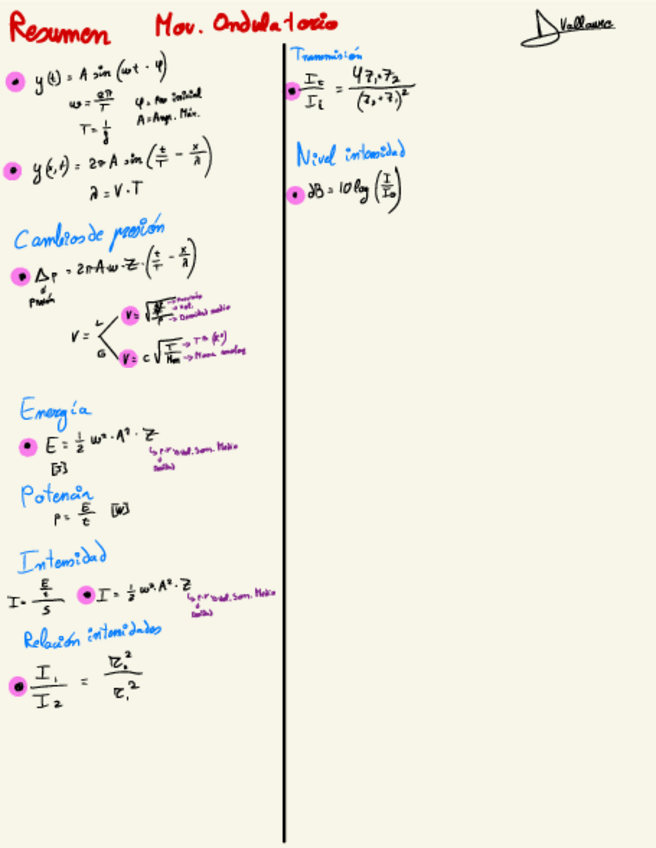 Resumen Mov. Ondulatorio
D Vallaure
y(t) = A sin (ωt - φ)
ω = 2π/T φ = fase inicial
T = 1/f A = Amp. Máx.
y(x,t) = 2πA sin (t/T - x/λ)
λ = V · T
Cambios de presión
Δp = 2πA·ω·Z·(t/T - x/λ)
presión
V =
L
V = √
→ Densidad medio
G
V = C √(T/) → Tª (Kº)
→ Masa
Energía
E = 1/2 ω² · A² · Z
[J]
Potencia
P = E/t [W]
Intensidad
I = E/t/S
I = 1/2 ω² · A² · Z
Relación intensidades
I₁/I₂ =
Transmisión
It/Ii = 4z₁·z₂/(z₂+z₁)²
Nivel intensidad
dB = 10 log (I/I₀)